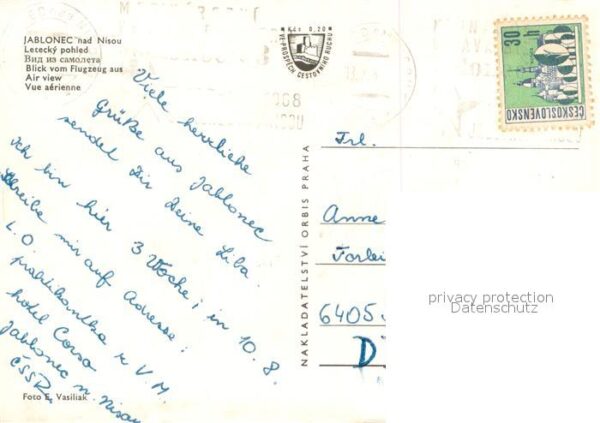 JABLONEC nad Nisou
Letecký pohled
Вид из самолета
Blick vom Flugzeug aus
Air view
Vue aérienne
Kčs 0,20
VE PROSPĚCH CESTOVNÍHO RUCHU
30 h
ČESKOSLOVENSKO
Viele herrliche
Grüße aus Jablonec
sendet Dir Deine Liba.
Ich bin hier 3 Woche i in 10. 8.
Schreibe mir auf Adresse:
L. O
praktikantka r V. M.
hotel Corso
Jablonec n Nisou
ČSSR
Foto E. Vasiliak
NAKLADATELSTVÍ ORBIS PRAHA
Frl.
Anne
6405
D
privacy protection
Datenschutz